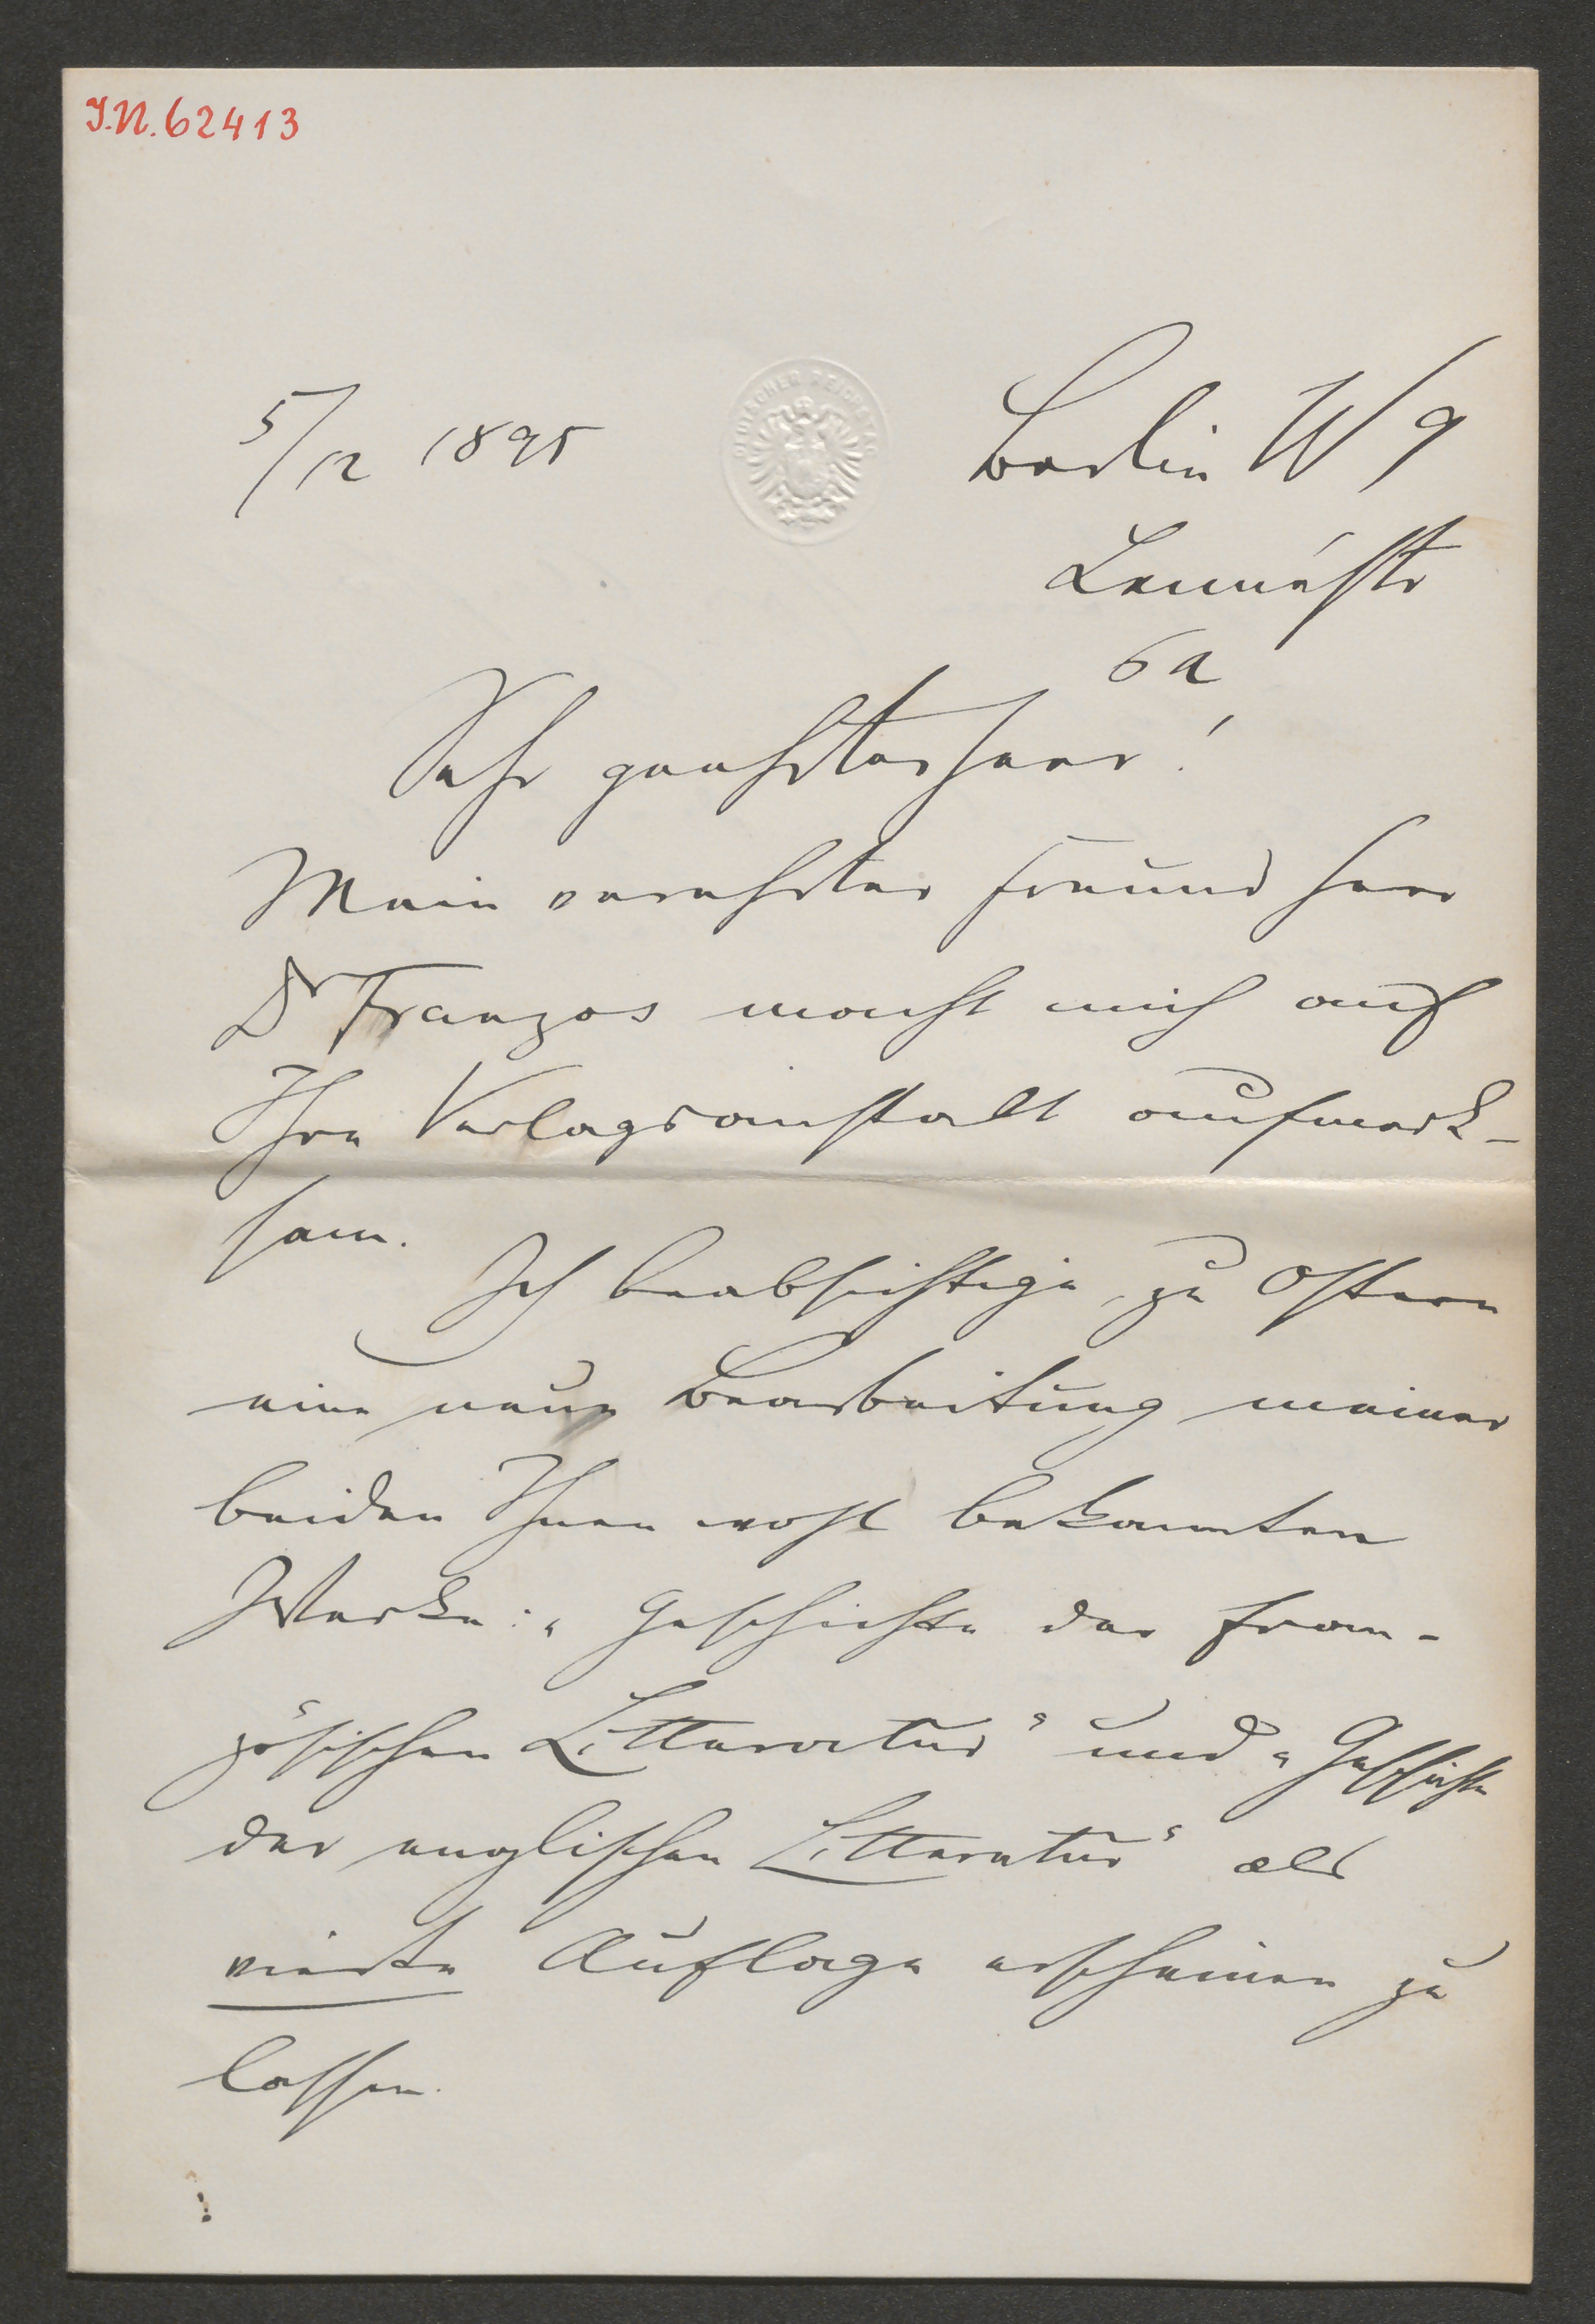 I.N. 62413
5/12 1895
DEUTSCHER REICHSTAG
Berlin W/9
Lennéstr
6a
Sehr geehrter Herr!
Mein verehrter Freund Herr
Dr Franzos macht mich auf
Ihre Verlagsanstalt aufmerk-
sam.
Ich beabsichtige, zu Ostern
eine neue Bearbeitung meiner
beiden Ihnen wohl bekannten
Werke: „Geschichte der fran-
zösischen Litteratur“ und „Geschichte
der englischen Litteratur“ als
vierte Auflage erscheinen zu
lassen.